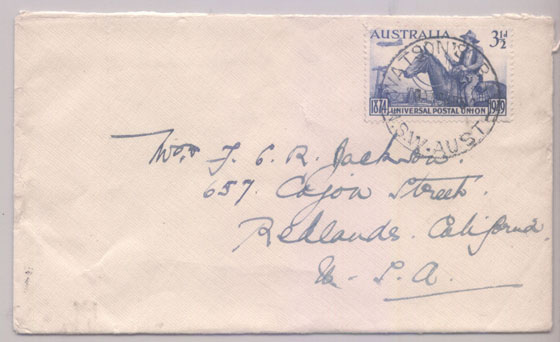 AUSTRALIA 3½d
1874 UNIVERSAL POSTAL UNION 1949
WATSON'S B
N.S.W. AUST
F. C. R. Jackson.
657. Cajon Street.
Redlands. California
U. S. A.